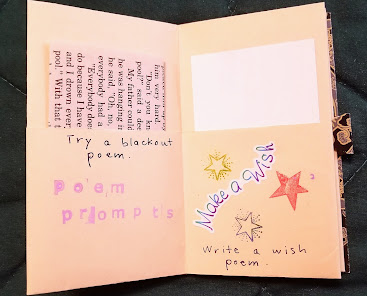 ham very hard.
"Don't you kn
pool?" said a
My father could
he was hanging in
he said, "Oh, no,
everybody had a
"Everybody does
do because I have
and I drown ever
pool." With that t
Try a blackout
poem.
Poem
prompts
Make a Wish
Write a wish
poem.